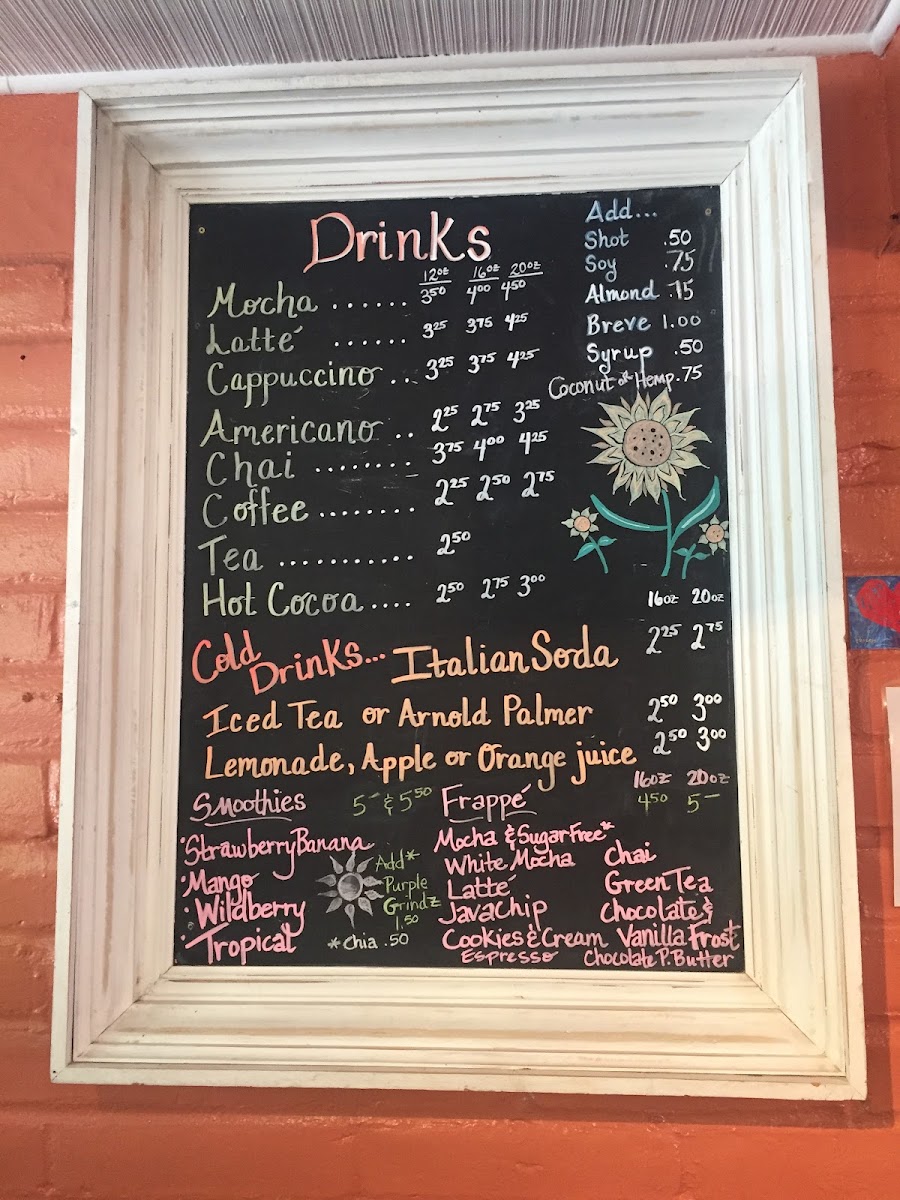 Drinks
12oz 16oz 20oz
Mocha ...... 3 50 4 00 4 50
Latté ...... 3 25 3 75 4 25
Cappuccino .. 3 25 3 75 4 25
Americano .. 2 25 2 75 3 25
Chai ........ 3 75 4 00 4 25
Coffee ........ 2 25 2 50 2 75
Tea ........... 2 50
Hot Cocoa .... 2 50 2 75 3 00
Add...
Shot .50
Soy .75
Almond .75
Breve 1.00
Syrup .50
Coconut or Hemp .75
16oz 20oz
Cold Drinks... Italian Soda 2 25 2 75
Iced Tea or Arnold Palmer 2 50 3 00
Lemonade, Apple or Orange juice 2 50 3 00
Smoothies 5 — & 5 50
• Strawberry Banana
• Mango
• Wildberry
• Tropical
Add*
Purple
Grindz
1.50
*Chia .50
16oz 20oz
Frappé 4 50 5 —
Mocha & Sugar Free*
White Mocha
Latté
Java Chip
Cookies & Cream
Espresso
Chai
Green Tea
Chocolate &
Vanilla Frost
Chocolate P. Butter